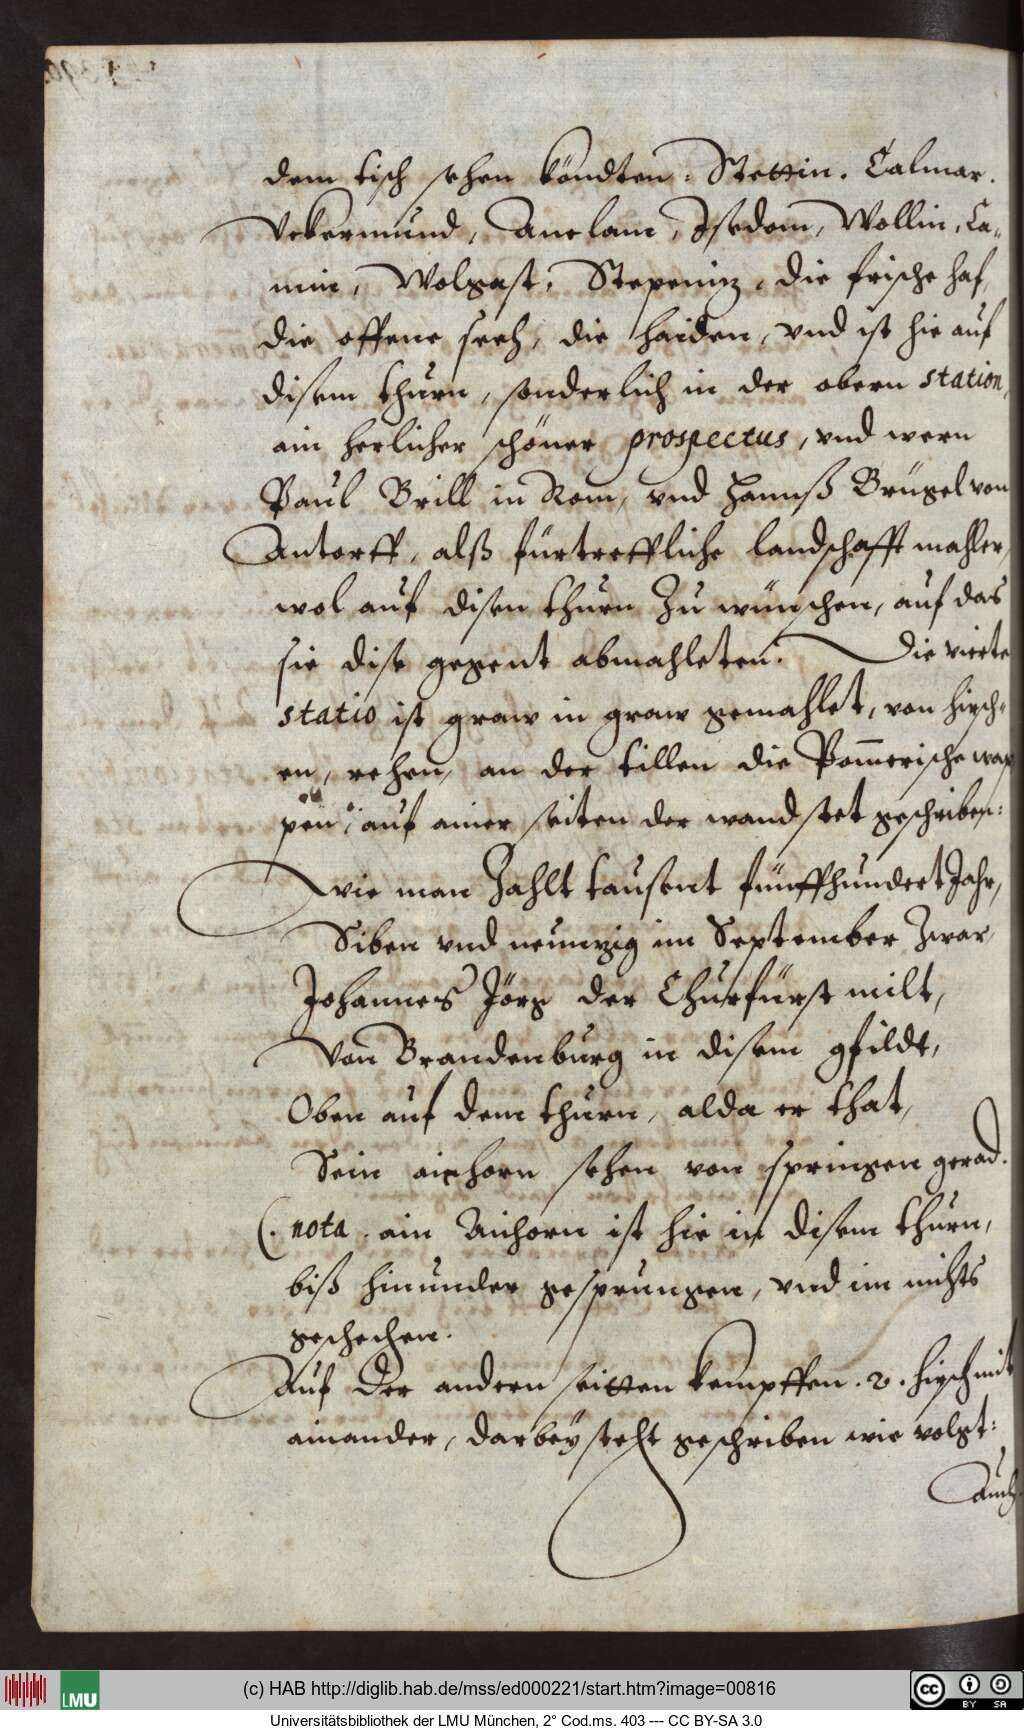 dem tisch sehen köndten. Stettin. Calmar.
Vckermünd, Anclam, Jsedom, Wollin, Ca-
min, Wolgast, Stepeniz, die frische haf,
die offene seeh, die haiden, vnd ist hie auf
disem thurn, sonderlich in der obern station,
ain herlicher schöner prospectus, vnd wern
Paul Brill in Rom, vnd Hannß Brügel von
Antorff, alß fürtreffliche landschafft mahler,
wol auf disen thurn zu wünschen, auf das
sie dise gegent abmahleten. Die vierte
statio ist graw in graw gemahlet, von hirsch-
en, rehen, an der tillen die Pom̄erische wap
pen, auf ainer seiten der wand stet geschriben:
Wie man zahlt tausent fünffhundert Jahr,
Siben vnd neunzig im September zwar,
Johannes Jörg der Churfürst milt,
Von Brandenburg in disem gfildt,
Oben auf dem thurn, alda er that,
Sein aichorn sehen von springen gerad.
(. nota. ain Aichorn ist hie in disem thurn,
biß hinunder gesprungen, vnd im nichts
geschechen.
Auf der andern seitten kempffen .2. hirsch mit
ainander, darbey steht geschriben wie volgt:
Auch
(c) HAB http://diglib.hab.de/mss/ed000221/start.htm?image=00816
LMU
Universitätsbibliothek der LMU München, 2° Cod.ms. 403 --- CC BY-SA 3.0
cc
BY SA